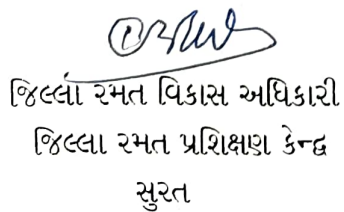 જિલ્લા રમત વિકાસ અધિકારી
જિલ્લા રમત પ્રશિક્ષણ કેન્દ્ર
સુરત